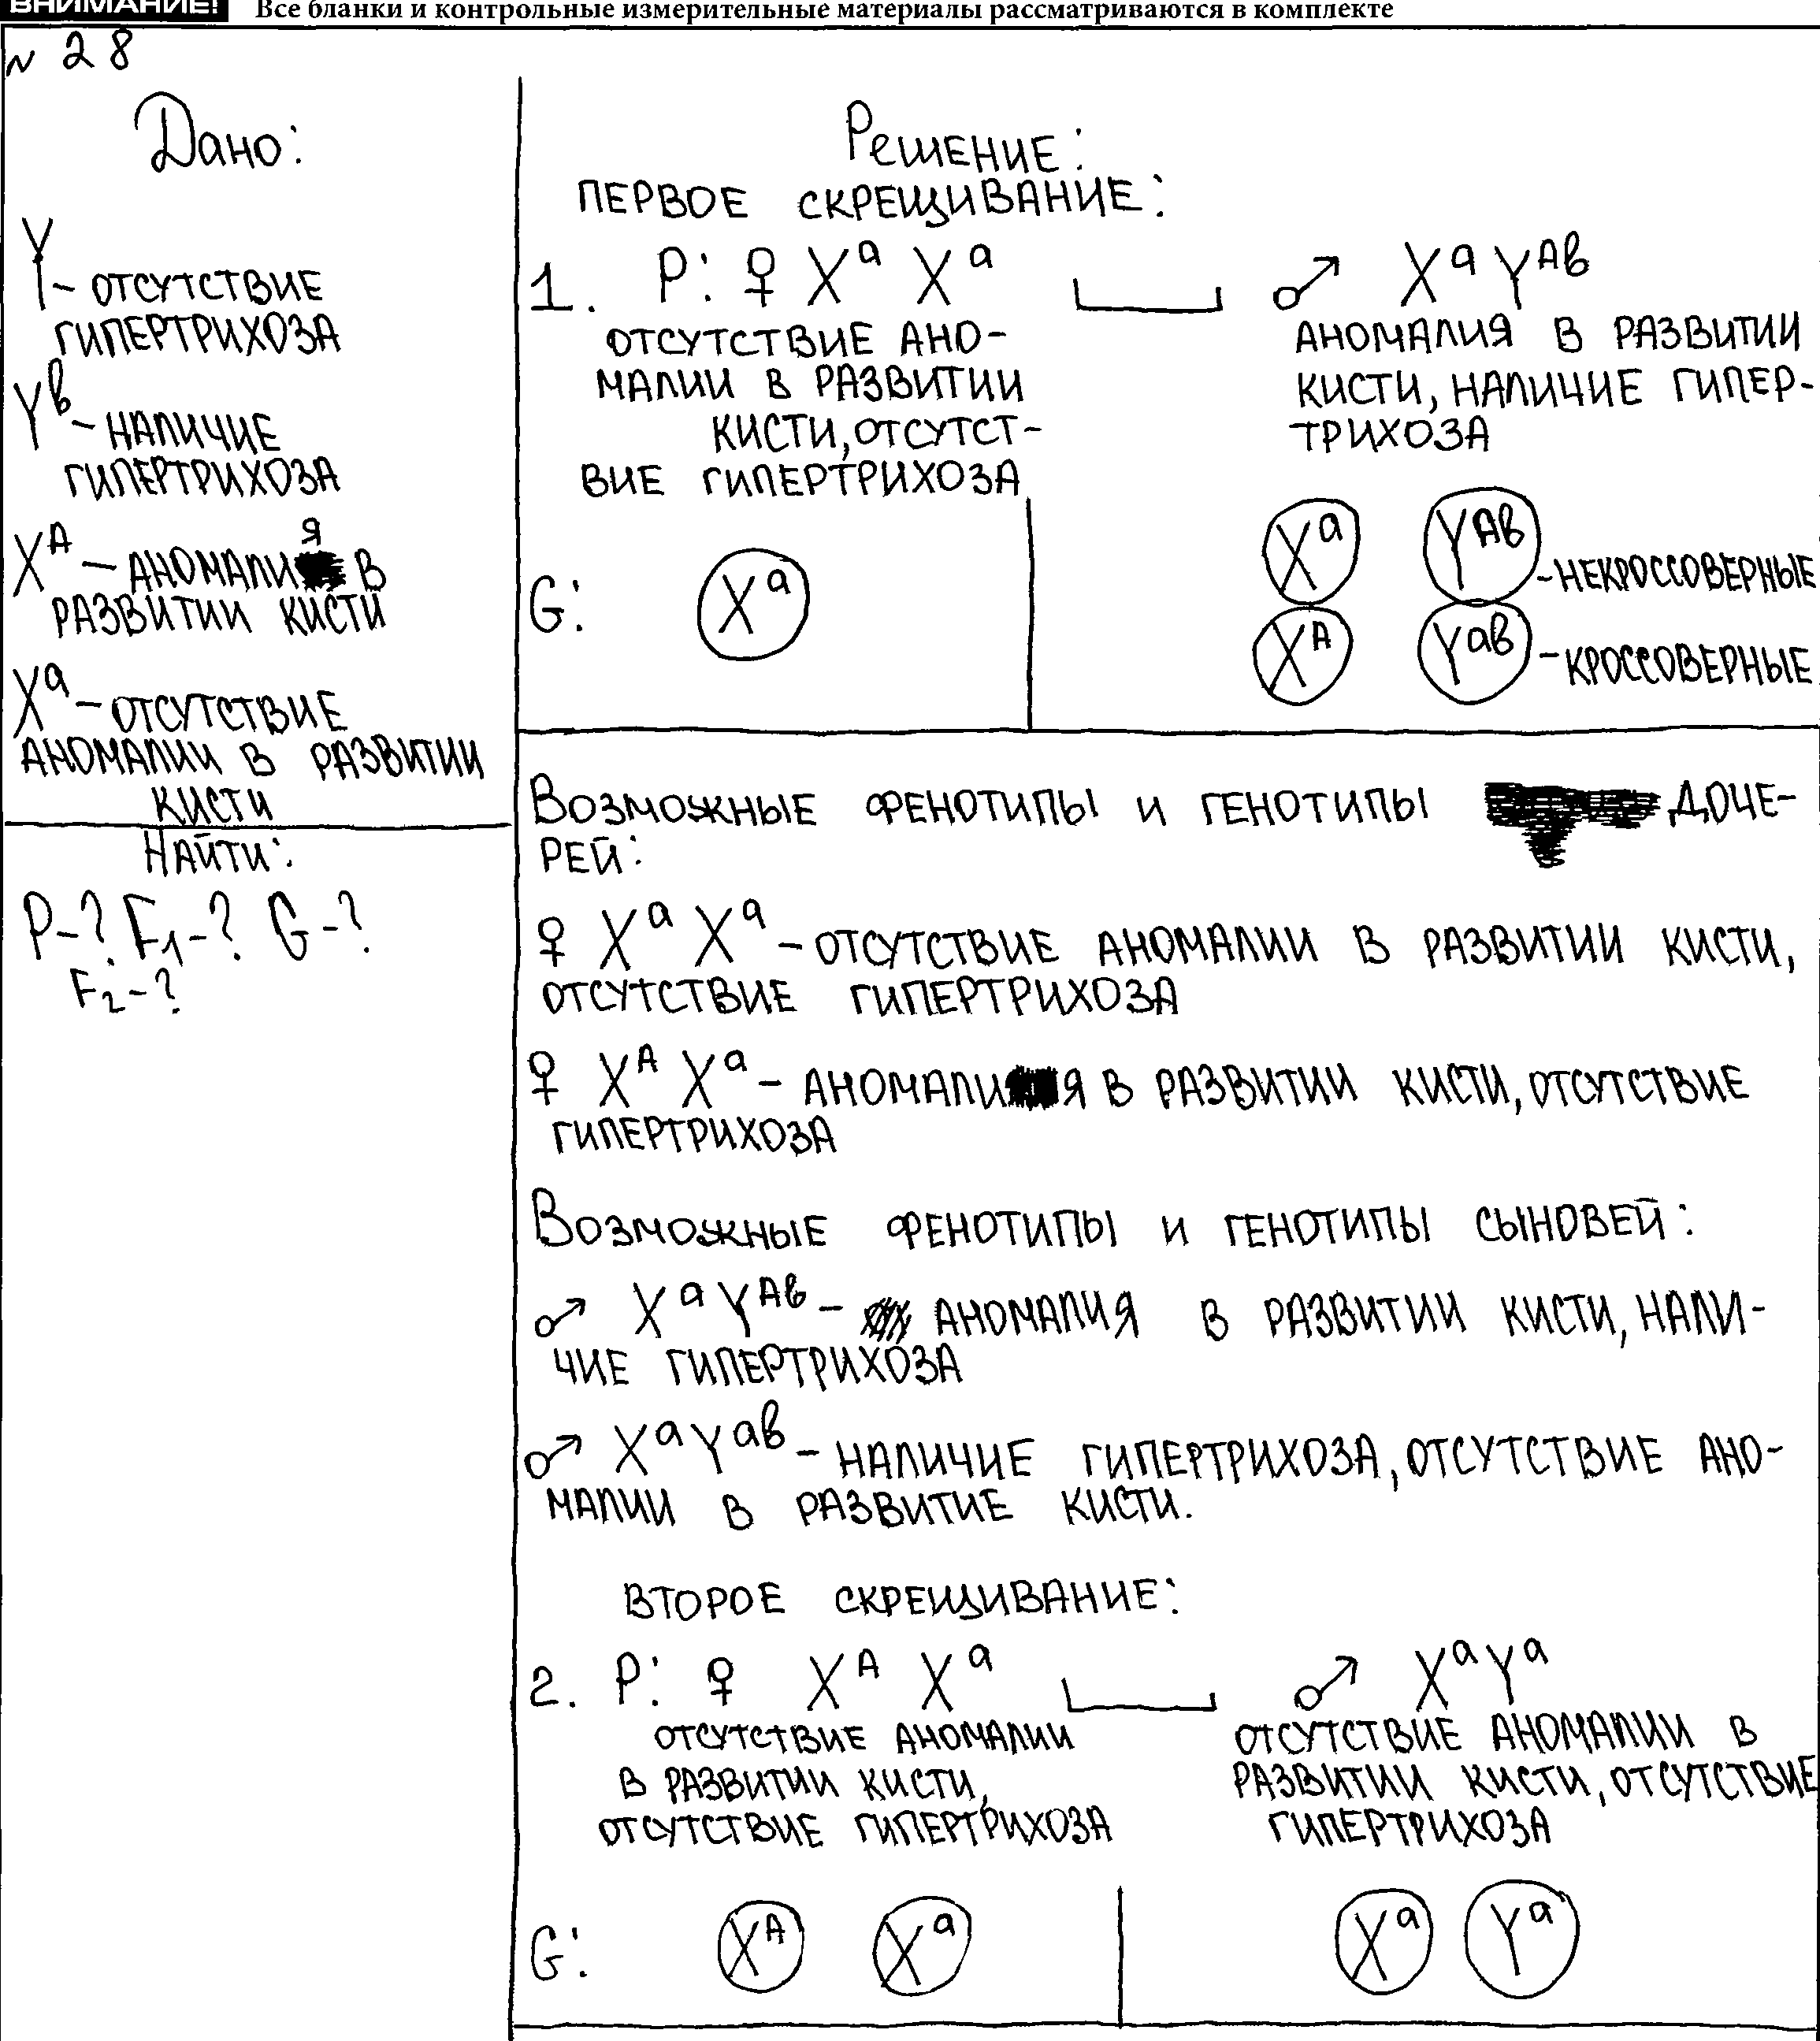 ВНИМАНИЕ! Все бланки и контрольные измерительные материалы рассматриваются в комплекте
N 28
Дано:
Y - ОТСУТСТВИЕ
ГИПЕРТРИХОЗА
Yᵇ - НАЛИЧИЕ
ГИПЕРТРИХОЗА
Xᴬ - АНОМАЛИЯ В
РАЗВИТИИ КИСТИ
Xᵃ - ОТСУТСТВИЕ
АНОМАЛИИ В РАЗВИТИИ
КИСТИ
НАЙТИ:
P-? F₁-? G-?
F₂-?
РЕШЕНИЕ:
ПЕРВОЕ СКРЕЩИВАНИЕ:
1. P: ♀ Xᵃ Xᵃ ♂ XᵃYᴬᵇ
ОТСУТСТВИЕ АНО-
МАЛИИ В РАЗВИТИИ
КИСТИ, ОТСУТСТ-
ВИЕ ГИПЕРТРИХОЗА
АНОМАЛИЯ В РАЗВИТИИ
КИСТИ, НАЛИЧИЕ ГИПЕР-
ТРИХОЗА
G: Xᵃ
Xᵃ Yᴬᵇ - НЕКРОССОВЕРНЫЕ
Xᴬ Yᵃᵇ - КРОССОВЕРНЫЕ
ВОЗМОЖНЫЕ ФЕНОТИПЫ И ГЕНОТИПЫ ДОЧЕ-
РЕЙ:
♀ Xᵃ Xᵃ - ОТСУТСТВИЕ АНОМАЛИИ В РАЗВИТИИ КИСТИ,
ОТСУТСТВИЕ ГИПЕРТРИХОЗА
♀ Xᴬ Xᵃ - АНОМАЛИЯ В РАЗВИТИИ КИСТИ, ОТСУТСТВИЕ
ГИПЕРТРИХОЗА
ВОЗМОЖНЫЕ ФЕНОТИПЫ И ГЕНОТИПЫ СЫНОВЕЙ:
♂ XᵃYᴬᵇ - АНОМАЛИЯ В РАЗВИТИИ КИСТИ, НАЛИ-
ЧИЕ ГИПЕРТРИХОЗА
♂ XᵃYᵃᵇ - НАЛИЧИЕ ГИПЕРТРИХОЗА, ОТСУТСТВИЕ АНО-
МАЛИИ В РАЗВИТИЕ КИСТИ.
ВТОРОЕ СКРЕЩИВАНИЕ:
2. P: ♀ Xᴬ Xᵃ ♂ XᵃYᵃ
ОТСУТСТВИЕ АНОМАЛИИ
В РАЗВИТИИ КИСТИ,
ОТСУТСТВИЕ ГИПЕРТРИХОЗА
ОТСУТСТВИЕ АНОМАЛИИ В
РАЗВИТИИ КИСТИ, ОТСУТСТВИЕ
ГИПЕРТРИХОЗА
G: Xᴬ Xᵃ Xᵃ Yᵃ